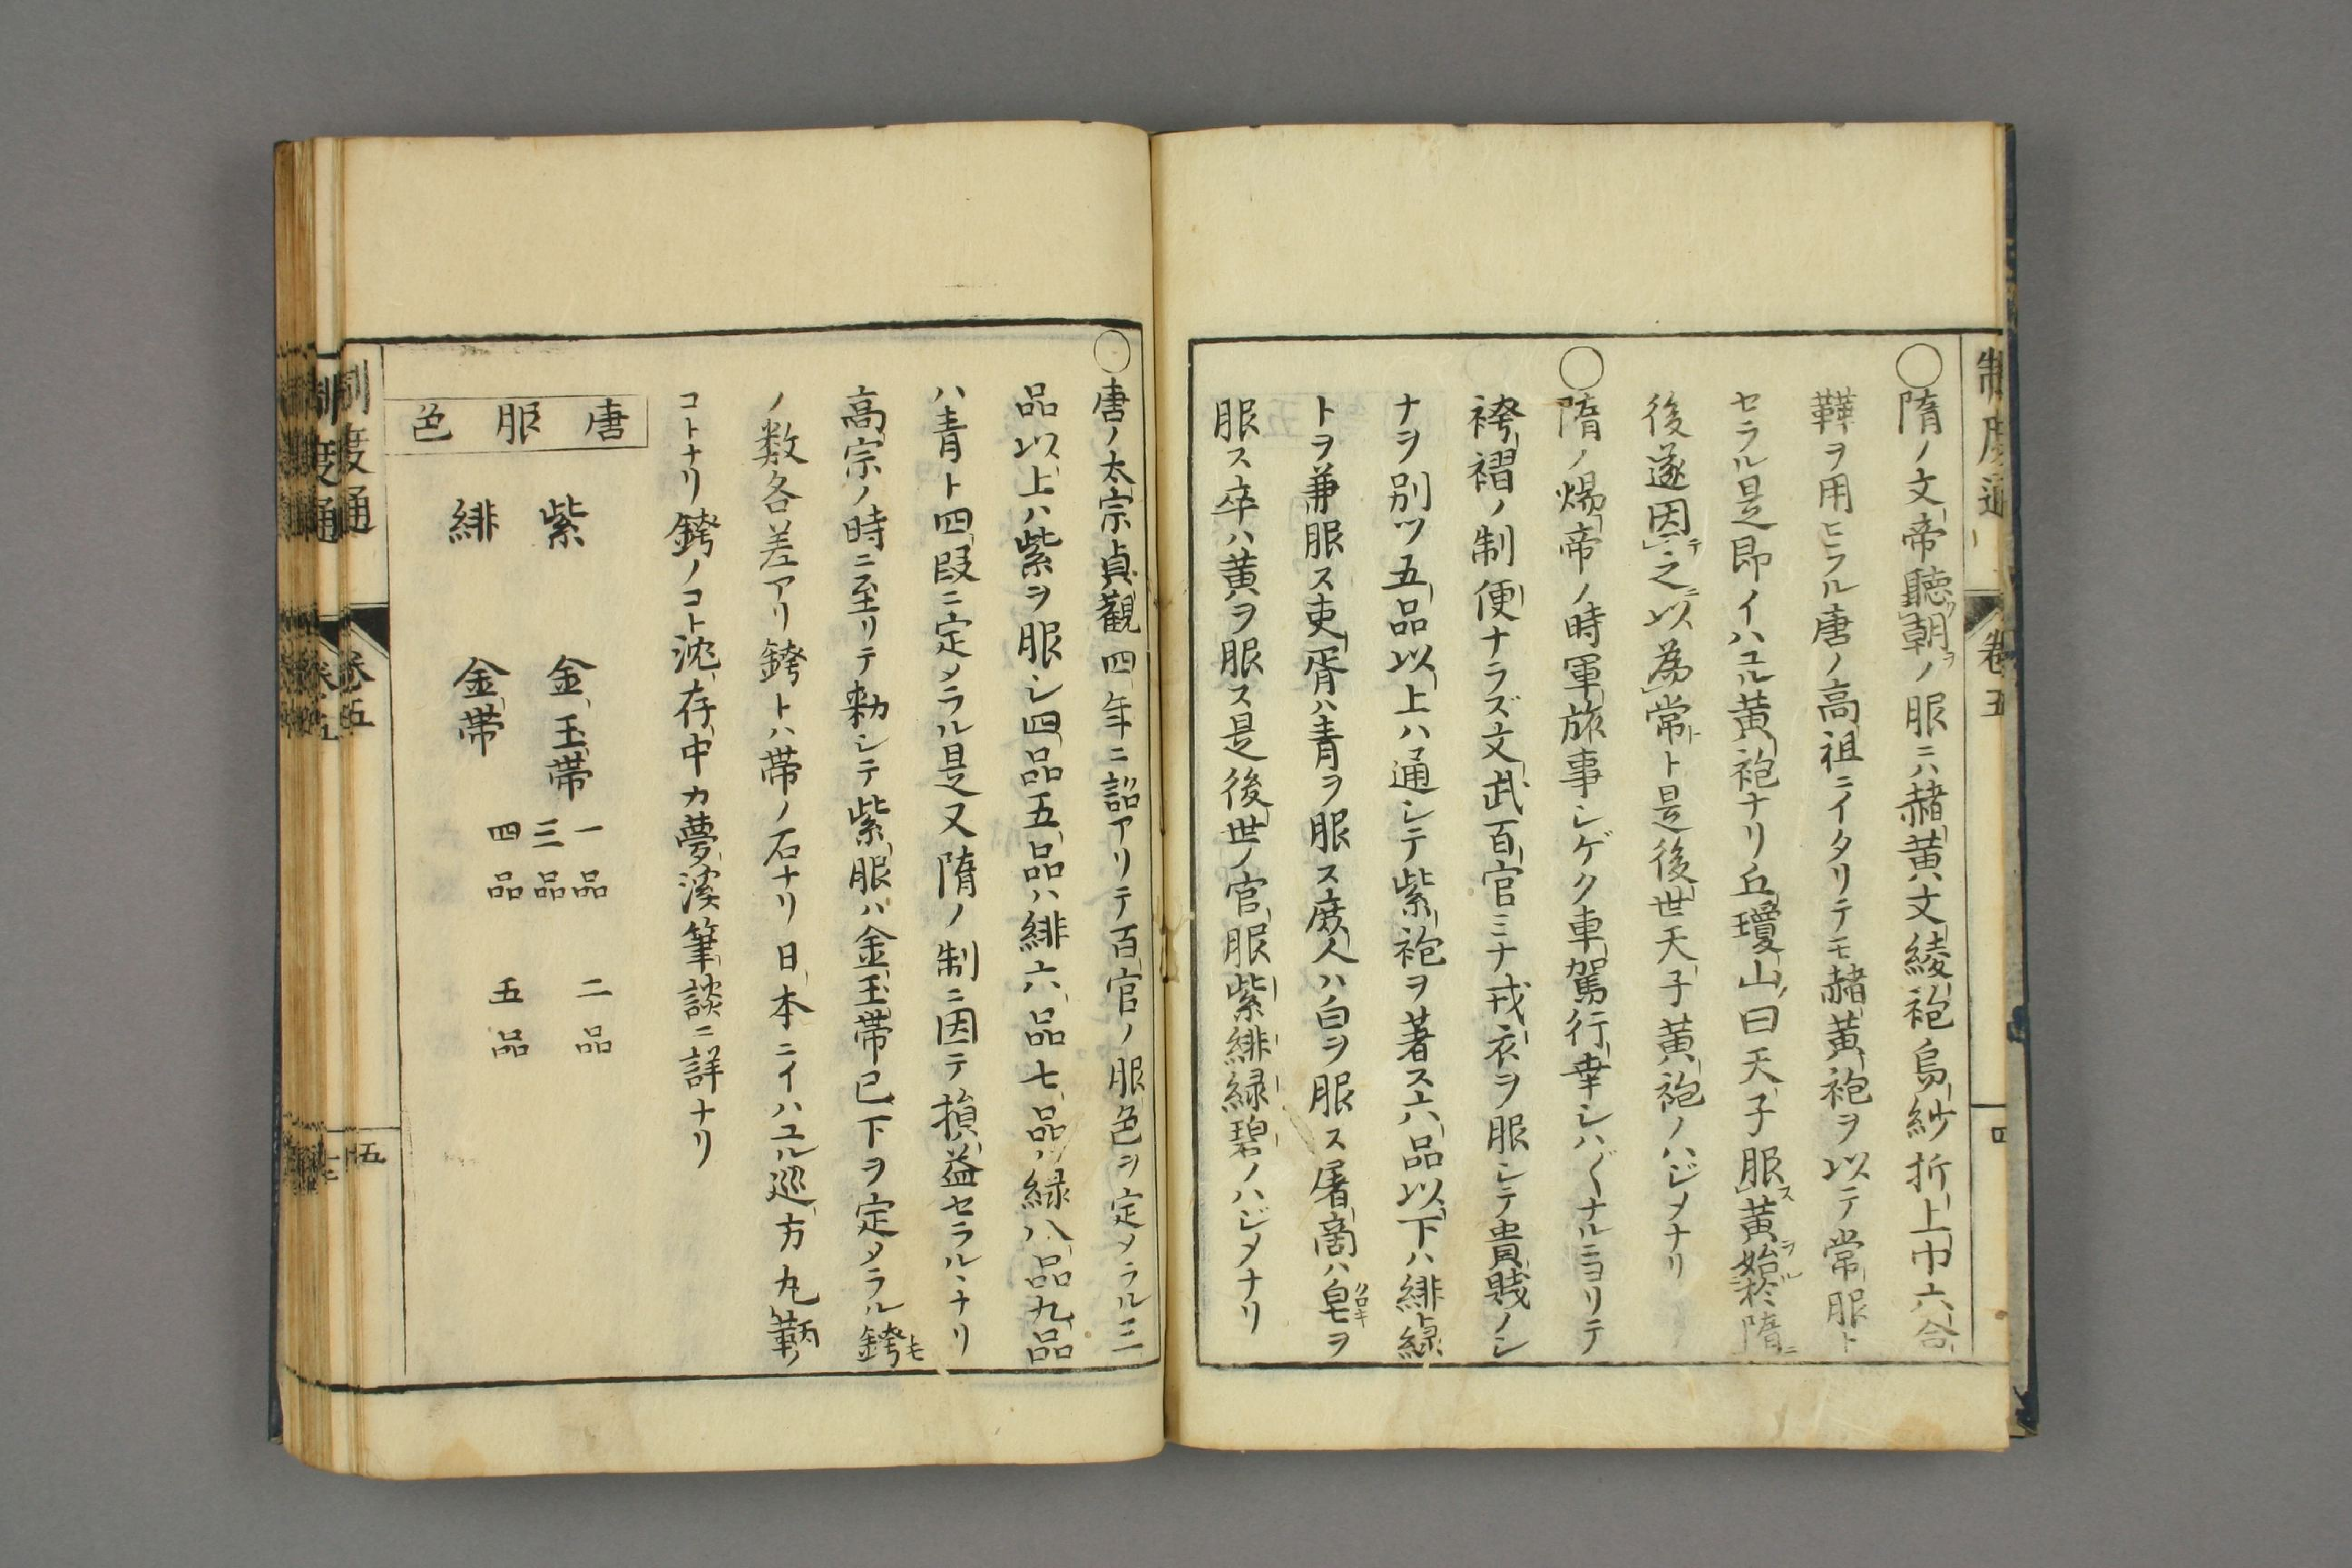 制度通
卷五
四
○隋ノ文帝聽朝ノ服ニハ赭黄文綾袍烏紗折上巾六合
鞾ヲ用ヒラル唐ノ高祖ニイタリテモ赭黄袍ヲ以テ常服ト
セラル是即イハユル黄袍ナリ丘瓊山曰天子服黄始於隋
後遂因之以為常ト是後世天子黄袍ノハジメナリ
○隋ノ煬帝ノ時軍旅事シゲク車駕行幸シハ〴〵ナルニヨリテ
袴褶ノ制便ナラズ文武百官ミナ戎衣ヲ服シテ貴賤ノシ
ナヲ別ツ五品以上ハ通シテ紫袍ヲ著ス六品以下ハ緋緑
トヲ兼服ス吏胥ハ青ヲ服ス庻人ハ白ヲ服ス屠商ハ皁ヲ
服ス卒ハ黄ヲ服ス是後世ノ官服紫緋緑碧ノハジメナリ
○唐ノ太宗貞觀四年ニ詔アリテ百官ノ服色ヲ定メラル三
品以上ハ紫ヲ服シ四品五品ハ緋六品七品ハ緑八品九品
ハ青ト四段ニ定メラル是又隋ノ制ニ因テ損益セラルヽナリ
高宗ノ時ニ至リテ勅シテ紫服ハ金玉帯已下ヲ定メラル銙
ノ数各差アリ銙トハ帯ノ石ナリ日本ニイハユル巡方丸鞆ノ
コトナリ銙ノコト沈存中カ夢溪筆談ニ詳ナリ
唐服色
紫　金玉帯　一品　二品　三品
緋　金帯　四品　五品
制度通
卷五
五